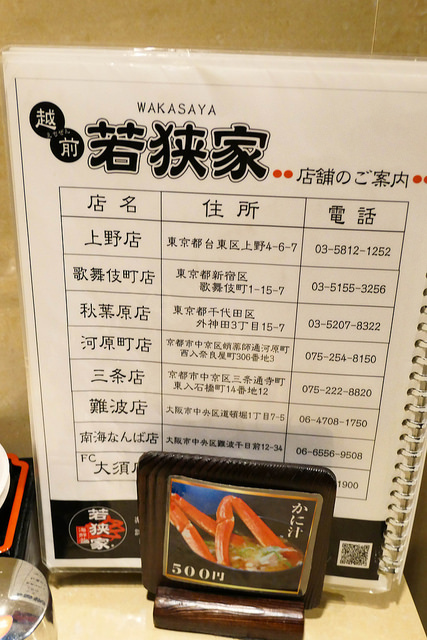 WAKASAYA
越前
えちぜん
若狭家
店舗のご案内
店名 住所 電話
上野店 東京都台東区上野4-6-7 03-5812-1252
歌舞伎町店 東京都新宿区
歌舞伎町1-15-7 03-5155-3256
秋葉原店 東京都千代田区
外神田3丁目15-7 03-5207-8322
河原町店 京都市中京区蛸薬師通河原町
西入奈良屋町306番地3 075-254-8150
三条店 京都市中京区三条通寺町
東入石橋町14番地12 075-222-8820
難波店 大阪市中央区道頓堀1丁目7-5 06-4708-1750
南海なんば店 大阪市中央区難波千日前12-34 06-6556-9508
FC
大須 1900
若狭家
かに汁
500円